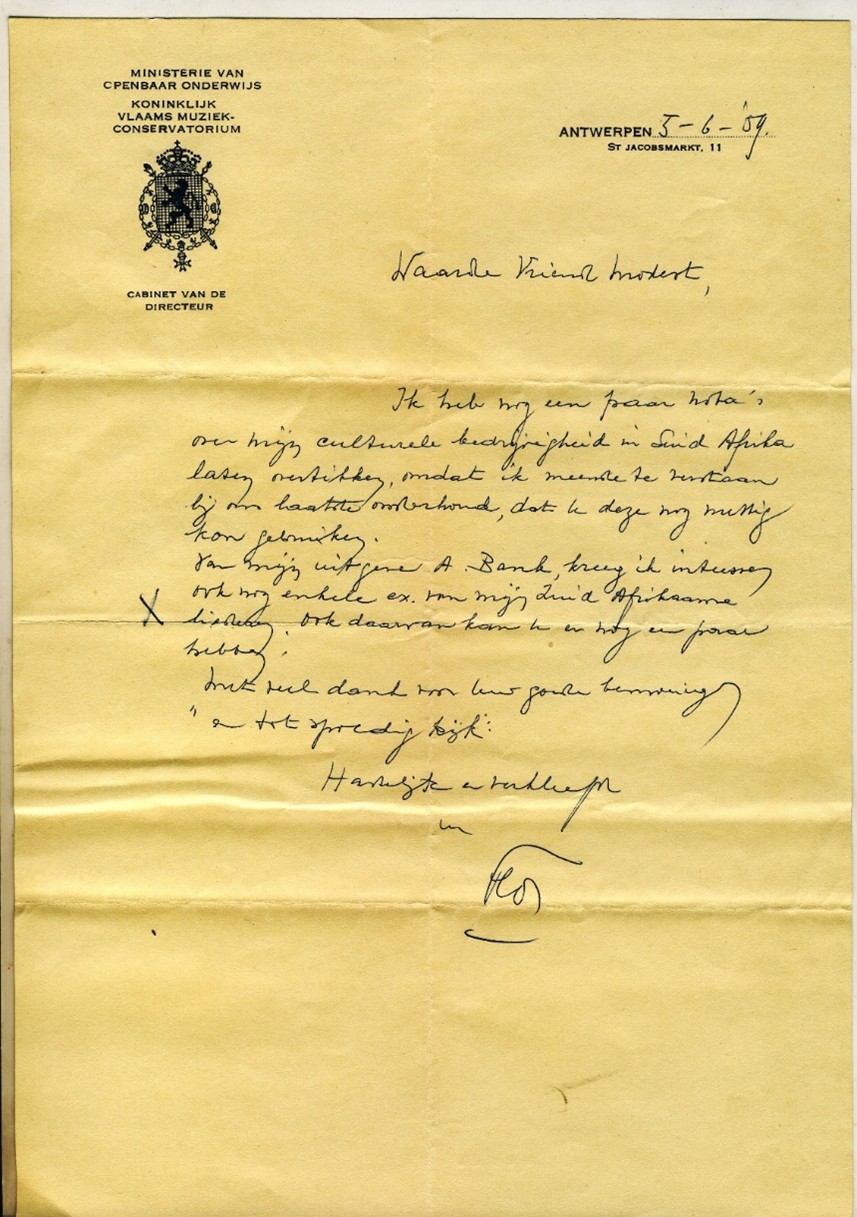 MINISTERIE VAN
OPENBAAR ONDERWIJS
KONINKLIJK
VLAAMS MUZIEK-
CONSERVATORIUM
ANTWERPEN 5-6-'59.
ST JACOBSMARKT, 11
CABINET VAN DE
DIRECTEUR
Waarde Vriend Modest,
Ik heb nog een paar nota's
over mijn culturele bedrijvigheid in Zuid Afrika
laten overtikken, omdat ik meende te verstaan
bij ons laatste onderhoud, dat U deze nog nuttig
kon gebruiken.
Van mijn uitgever A. Bank, kreeg ik intussen
X ook nog enkele ex. van mijn Zuid Afrikaanse
liederen. Ook daarvan kan U er nog een paar
hebben.
Met veel dank voor Uw goede
"en tot spoedig kijk":
Hartelijk en verkleefd
uw
Flor